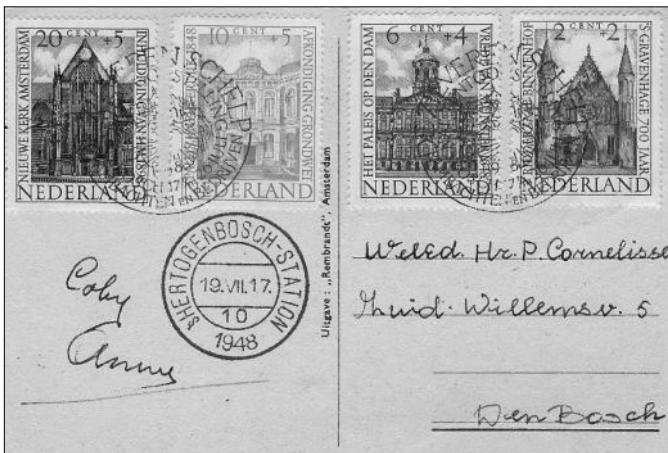 20 CENT +5
NIEUWE KERK AMSTERDAM
INHULDIGING VAN H.M.
NEDERLAND
10 CENT +5
1848
AFKONDIGING GRONDWET
NEDERLAND
6 CENT +4
HET PALEIS OP DEN DAM
NEDERLAND
2 CENT +2
BINNENHOF
'S-GRAVENHAGE 700 JAAR
NEDERLAND
'SHERTOGENBOSCH-STATION
19.VII.17.
10
1948
Uitgave: „Rembrandt", Amsterdam
Coby
Weled. Hr. P. Cornelisse
Zuid-Willemsv. 5
Den Bosch